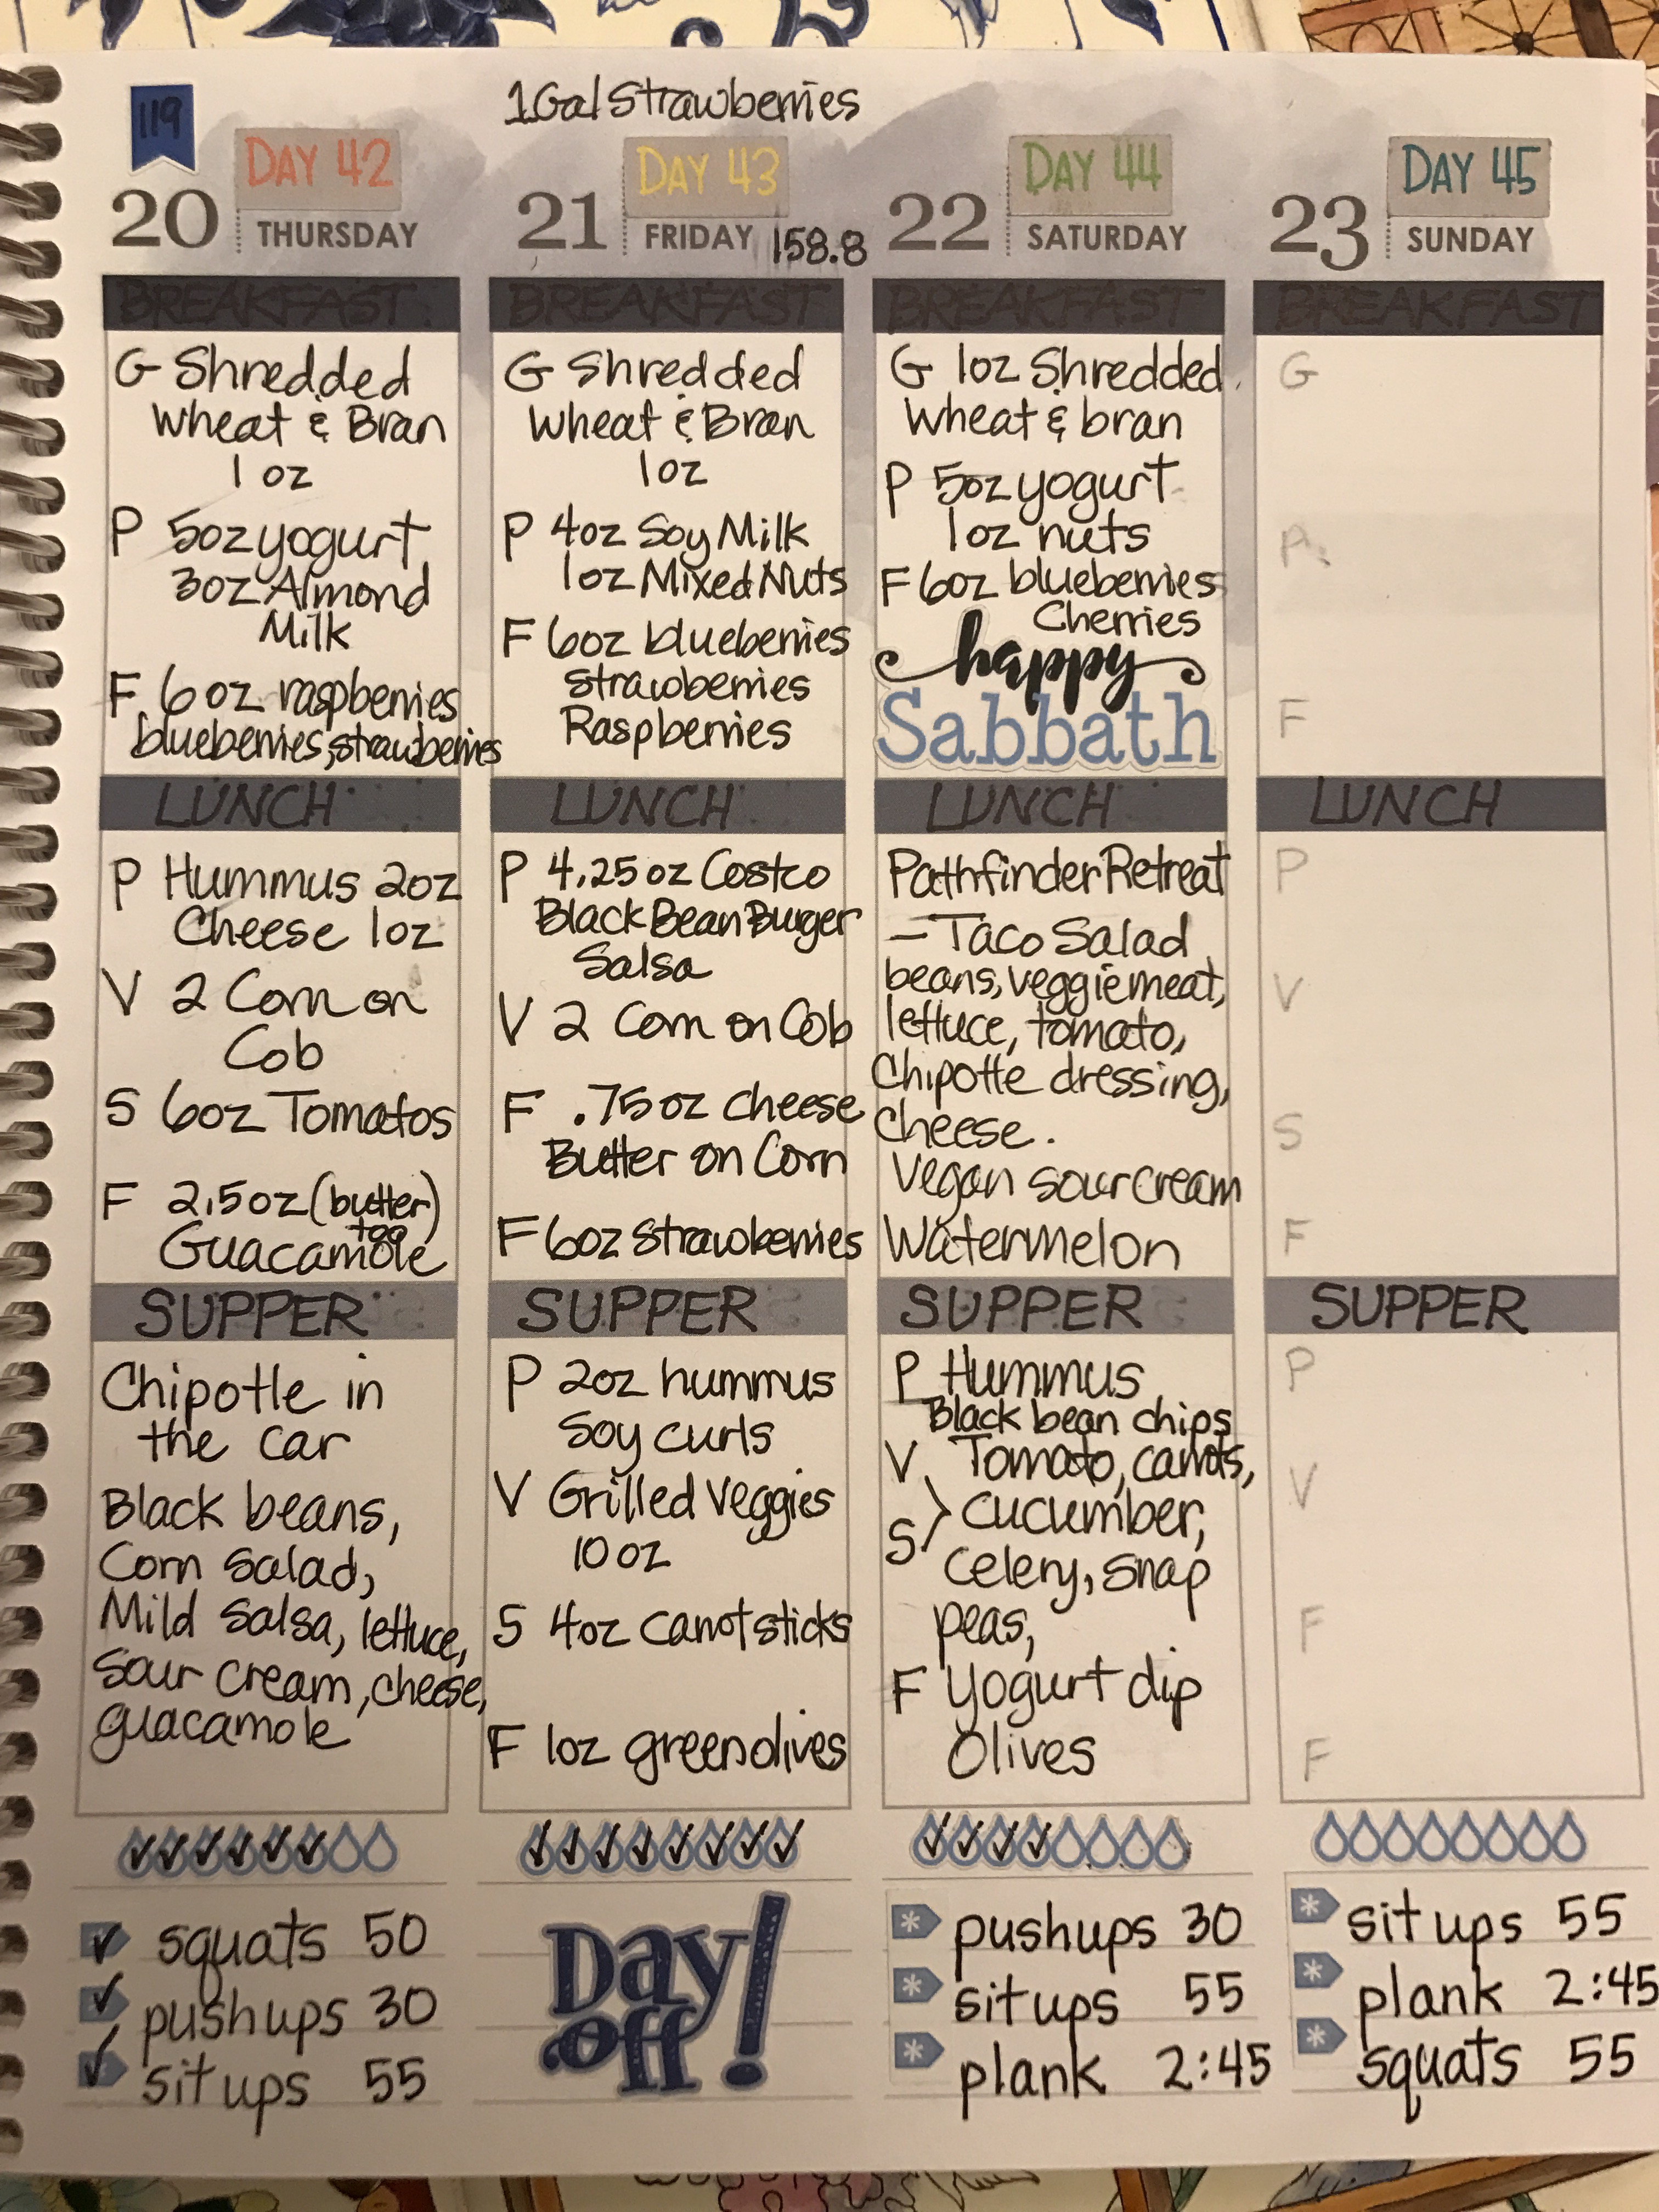 1 Gal Strawberries
119
DAY 42
20 THURSDAY
BREAKFAST
G Shredded
Wheat & Bran
1 oz
P 5oz yogurt
3oz Almond
Milk
F 6 oz raspberries
blueberries, strawberries
LUNCH
P Hummus 2oz
Cheese 1oz
V 2 Corn on
Cob
S 6oz Tomatos
F 2.5oz (butter)
too
Guacamole
SUPPER
Chipotle in
the car
Black beans,
Corn Salad,
Mild Salsa, lettuce,
Sour cream, cheese,
guacamole
squats 50
pushups 30
sit ups 55
DAY 43
21 FRIDAY 158.8
BREAKFAST
G Shredded
Wheat & Bran
1oz
P 4oz Soy Milk
1oz Mixed Nuts
F 6oz blueberries
strawberries
Raspberries
LUNCH
P 4.25 oz Costco
Black Bean Burger
Salsa
V 2 Corn on Cob
F .75 oz cheese
Butter on Corn
F 6oz Strawberries
SUPPER
P 2oz hummus
Soy curls
V Grilled Veggies
10 oz
S 4oz carrot sticks
F 1oz green olives
Day
off!
DAY 44
22 SATURDAY
BREAKFAST
G 1oz Shredded
Wheat & bran
P 5oz yogurt
1oz nuts
F 6oz blueberries
Cherries
happy
Sabbath
LUNCH
Pathfinder Retreat
- Taco Salad
beans, veggiemeat,
lettuce, tomato,
Chipotte dressing,
cheese.
Vegan sour cream
Watermelon
SUPPER
P Hummus
Black bean chips
V Tomato, carrots,
S Cucumber,
Celery, snap
peas,
F Yogurt dip
Olives
pushups 30
sit ups 55
plank 2:45
DAY 45
23 SUNDAY
BREAKFAST
G
P
F
LUNCH
P
V
S
F
SUPPER
P
V
F
F
sit ups 55
plank 2:45
squats 55